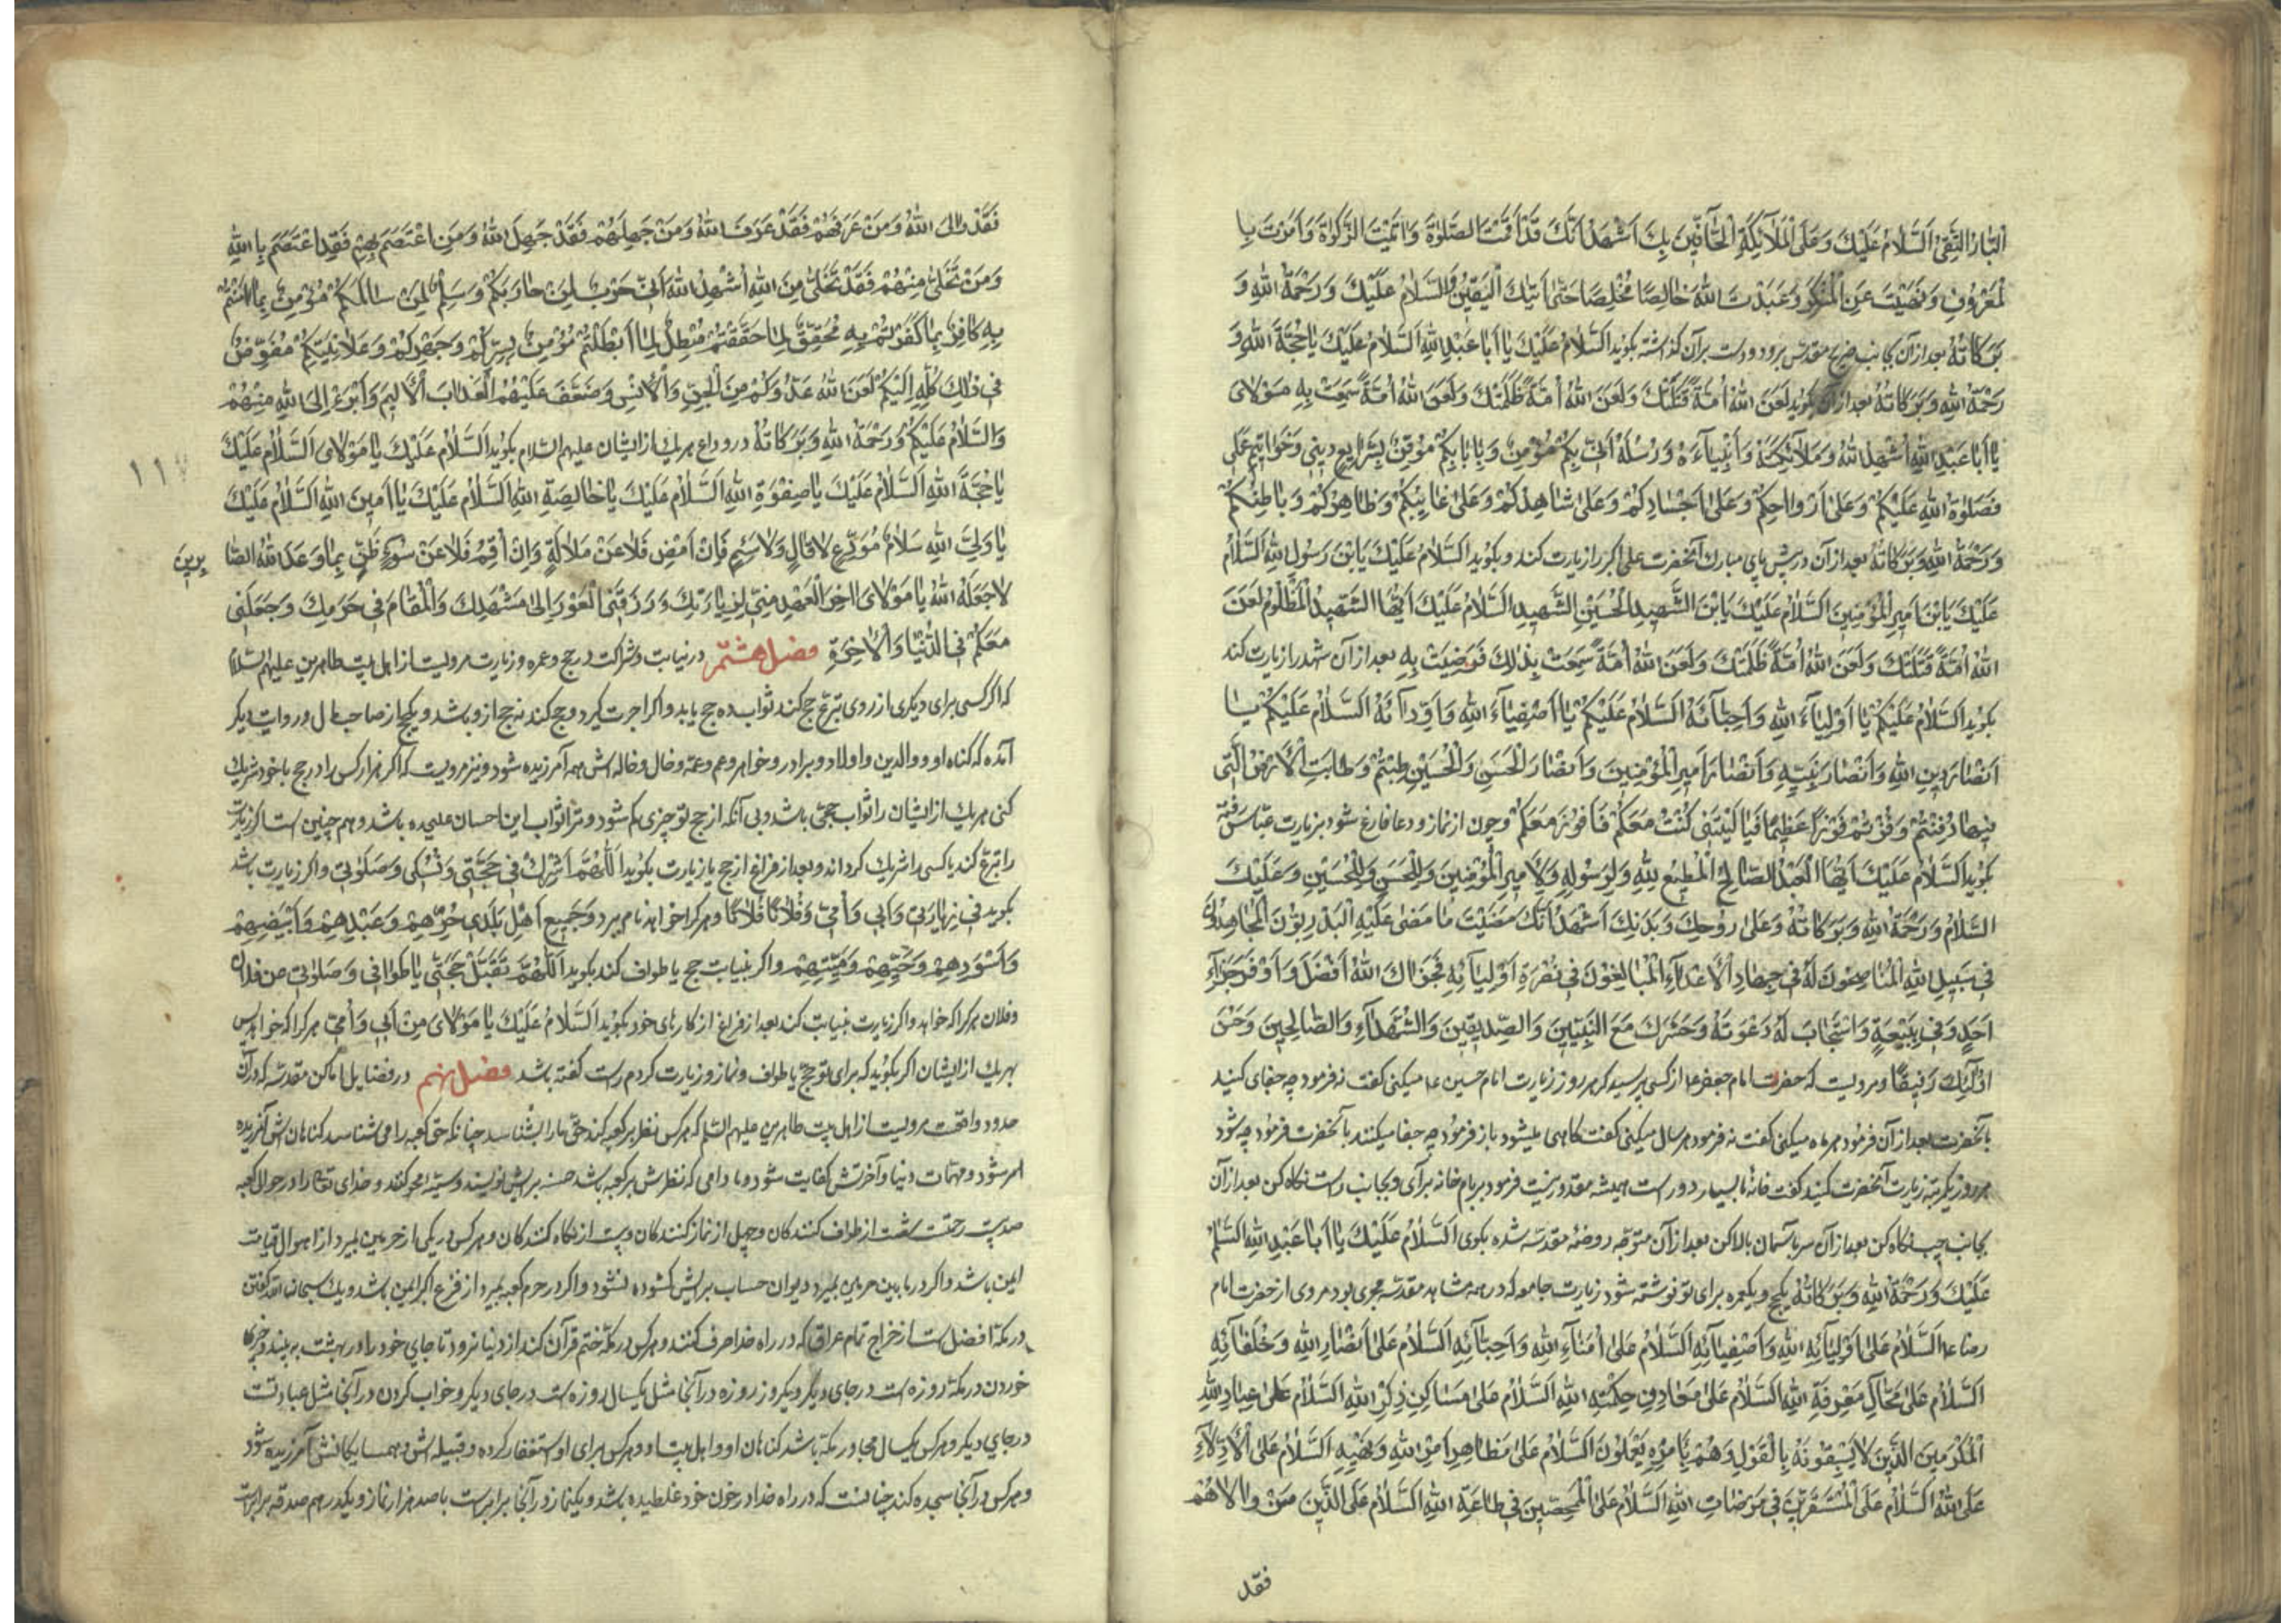 البَارُّ التَّقِيُّ اَلسَّلَامُ عَلَيْكَ وَعَلَى الْمَلَائِكَةِ الْحَافِّينَ بِكَ اَشْهَدُ اَنَّكَ قَدْ اَقَمْتَ الصَّلٰوةَ وَاٰتَيْتَ الزَّكٰوةَ وَاَمَرْتَ بِا
لْمَعْرُوفِ وَنَهَيْتَ عَنِ الْمُنْكَرِ وَعَبَدْتَ اللّٰهَ خَالِصًا مُخْلِصًا حَتّٰى اَتٰيكَ الْيَقِينُ وَالسَّلَامُ عَلَيْكَ وَرَحْمَةُ اللّٰهِ وَ
بَرَكَاتُهُ بعد ازآن بجانب ضريح مقدس برود ودست برآن كذاشته بكويد اَلسَّلَامُ عَلَيْكَ يَا اَبَا عَبْدِ اللّٰهِ اَلسَّلَامُ عَلَيْكَ يَا حُجَّةَ اللّٰهِ وَ
رَحْمَةُ اللّٰهِ وَبَرَكَاتُهُ بعد ازآن بكويد لَعَنَ اللّٰهُ اُمَّةً قَتَلَتْكَ وَلَعَنَ اللّٰهُ اُمَّةً ظَلَمَتْكَ وَلَعَنَ اللّٰهُ اُمَّةً سَمِعَتْ بِهِ مَوْلَاىَ
يَا اَبَا عَبْدِ اللّٰهِ اُشْهِدُ اللّٰهَ وَمَلَائِكَتَهُ وَاَنْبِيَاءَهُ وَرُسُلَهُ اَنِّى بِكُمْ مُؤْمِنٌ وَبِاِيَابِكُمْ مُوقِنٌ بِشَرَايِعِ دِينِى وَخَوَاتِيمِ عَمَلِى
فَصَلَوٰةُ اللّٰهِ عَلَيْكُمْ وَعَلٰى اَرْوَاحِكُمْ وَعَلٰى اَجْسَادِكُمْ وَعَلٰى شَاهِدِكُمْ وَعَلٰى غَايِبِكُمْ وَظَاهِرِكُمْ وَبَاطِنِكُمْ
وَرَحْمَةُ اللّٰهِ وَبَرَكَاتُهُ بعد ازآن درپيش پاى مبارك آنحضرت على اكبر را زيارت كند وبكويد اَلسَّلَامُ عَلَيْكَ يَا بْنَ رَسُولِ اللّٰهِ اَلسَّلَامُ
عَلَيْكَ يَا بْنَ اَمِيرِ الْمُؤْمِنِينَ اَلسَّلَامُ عَلَيْكَ يَا بْنَ الشَّهِيدِ الْحُسَيْنِ الشَّهِيدِ اَلسَّلَامُ عَلَيْكَ اَيُّهَا الشَّهِيدُ الْمَظْلُومُ لَعَنَ
اللّٰهُ اُمَّةً قَتَلَتْكَ وَلَعَنَ اللّٰهُ اُمَّةً ظَلَمَتْكَ وَلَعَنَ اللّٰهُ اُمَّةً سَمِعَتْ بِذٰلِكَ فَرَضِيَتْ بِهِ بعد ازآن شهدا را زيارت كند
بكويد اَلسَّلَامُ عَلَيْكُمْ يَا اَوْلِيَاءَ اللّٰهِ وَاَحِبَّائَهُ اَلسَّلَامُ عَلَيْكُمْ يَا اَصْفِيَاءَ اللّٰهِ وَاَوِدَّائَهُ اَلسَّلَامُ عَلَيْكُمْ يَا
اَنْصَارَ دِينِ اللّٰهِ وَاَنْصَارَ نَبِيِّهِ وَاَنْصَارَ اَمِيرِ الْمُؤْمِنِينَ وَاَنْصَارَ الْحَسَنِ وَالْحُسَيْنِ طِبْتُمْ وَطَابَتِ الْاَرْضُ الَّتِى
فِيهَا دُفِنْتُمْ وَفُزْتُمْ فَوْزًا عَظِيمًا فَيَا لَيْتَنِى كُنْتُ مَعَكُمْ فَاَفُوزَ مَعَكُمْ وچون از نماز ودعا فارغ شود بزيارت عباس رفته
بكويد اَلسَّلَامُ عَلَيْكَ اَيُّهَا الْعَبْدُ الصَّالِحُ الْمُطِيعُ لِلّٰهِ وَلِرَسُولِهِ وَلِاَمِيرِ الْمُؤْمِنِينَ وَالْحَسَنِ وَالْحُسَيْنِ وَعَلَيْكَ
السَّلَامُ وَرَحْمَةُ اللّٰهِ وَبَرَكَاتُهُ وَعَلٰى رُوحِكَ وَبَدَنِكَ اَشْهَدُ اَنَّكَ مَضَيْتَ مَا مَضٰى عَلَيْهِ الْبَدْرِيُّونَ الْمُجَاهِدُونَ
فِى سَبِيلِ اللّٰهِ الْمُنَاصِحُونَ لَهُ فِى جِهَادِ الْاَعْدَاءِ الْمُبَالِغُونَ فِى نُصْرَةِ اَوْلِيَائِهِ فَجَزَاكَ اللّٰهُ اَفْضَلَ وَاَوْفَرَ جَزَاءِ
اَحَدٍ وَفٰى بِبَيْعَتِهِ وَاسْتَجَابَ لَهُ دَعْوَتَهُ وَحَشَرَكَ مَعَ النَّبِيِّينَ وَالصِّدِّيقِينَ وَالشُّهَدَاءِ وَالصَّالِحِينَ وَحَسُنَ
اُولٰئِكَ رَفِيقًا ومرويست كه حضرت امام جعفر ع از كسى پرسيد كه هر روز زيارت امام حسين ع ميكنى كفت نه فرمود چه جفاى كنيد
بآنحضرت بعد ازآن فرمود هر ماه ميكنى كفت نه فرمود هر سال ميكنى كفت كاهى ميشود باز فرمود چه جفا ميكنند بآنحضرت فرمود چه شود
هر روز يكمرتبه زيارت آنحضرت كنيد كفت خانه ما بسيار دور است هميشه مقدور نيست فرمود بربام خانه برآى وبجانب راست نكاه كن بعد ازآن
بجانب چپ نكاه كن بعد ازآن سر بآسمان بالا كن بعد ازآن متوجه روضه مقدسه شده بكوى اَلسَّلَامُ عَلَيْكَ يَا اَبَا عَبْدِ اللّٰهِ اَلسَّلَامُ
عَلَيْكَ وَرَحْمَةُ اللّٰهِ وَبَرَكَاتُهُ يكحج ويكعمره براى تو نوشته شود زيارت جامعه كه در همه مشاهد مقدسه مجرى بود مروى از حضرت امام
رضا ع اَلسَّلَامُ عَلٰى اَوْلِيَائِهِ اللّٰهِ وَاَصْفِيَائِهِ اَلسَّلَامُ عَلٰى اُمَنَاءِ اللّٰهِ وَاَحِبَّائِهِ اَلسَّلَامُ عَلٰى اَنْصَارِ اللّٰهِ وَخُلَفَائِهِ
اَلسَّلَامُ عَلٰى مَحَالِّ مَعْرِفَةِ اللّٰهِ اَلسَّلَامُ عَلٰى مَعَادِنِ حِكْمَةِ اللّٰهِ اَلسَّلَامُ عَلٰى مَسَاكِنِ ذِكْرِ اللّٰهِ اَلسَّلَامُ عَلٰى عِبَادِ اللّٰهِ
الْمُكْرَمِينَ الَّذِينَ لَا يَسْبِقُونَهُ بِالْقَوْلِ وَهُمْ بِاَمْرِهِ يَعْمَلُونَ اَلسَّلَامُ عَلٰى مَظَاهِرِ اَمْرِ اللّٰهِ وَنَهْيِهِ اَلسَّلَامُ عَلَى الْاَدِلَّاءِ
عَلَى اللّٰهِ اَلسَّلَامُ عَلَى الْمُسْتَقِرِّينَ فِى مَرْضَاتِ اللّٰهِ اَلسَّلَامُ عَلَى الْمُمَحَّصِينَ فِى طَاعَةِ اللّٰهِ اَلسَّلَامُ عَلَى الَّذِينَ مَنْ وَالَاهُمْ
فقد
فَقَدْ وَالَى اللّٰهَ وَمَنْ عَرَفَهُمْ فَقَدْ عَرَفَ اللّٰهَ وَمَنْ جَهِلَهُمْ فَقَدْ جَهِلَ اللّٰهَ وَمَنِ اعْتَصَمَ بِهِمْ فَقَدِ اعْتَصَمَ بِاللّٰهِ
وَمَنْ تَخَلّٰى مِنْهُمْ فَقَدْ تَخَلّٰى مِنَ اللّٰهِ اُشْهِدُ اللّٰهَ اَنِّى حَرْبٌ لِمَنْ حَارَبَكُمْ وَسِلْمٌ لِمَنْ سَالَمَكُمْ مُؤْمِنٌ بِمَا اٰمَنْتُمْ
بِهِ كَافِرٌ بِمَا كَفَرْتُمْ بِهِ مُحَقِّقٌ لِمَا حَقَّقْتُمْ مُبْطِلٌ لِمَا اَبْطَلْتُمْ مُؤْمِنٌ بِسِرِّكُمْ وَجَهْرِكُمْ وَعَلَانِيَتِكُمْ مُفَوِّضٌ
فِى ذٰلِكَ كُلِّهِ اِلَيْكُمْ لَعَنَ اللّٰهُ عَدُوَّكُمْ مِنَ الْجِنِّ وَالْاِنْسِ وَضَعَّفَ عَلَيْهُمُ الْعَذَابَ الْاَلِيمَ وَاَبْرَءُ اِلَى اللّٰهِ مِنْهُمْ
وَالسَّلَامُ عَلَيْكُمْ وَرَحْمَةُ اللّٰهِ وَبَرَكَاتُهُ ودر وداع هريك از ايشان عليهم السلام بكويد اَلسَّلَامُ عَلَيْكَ يَا مَوْلَاىَ اَلسَّلَامُ عَلَيْكَ
يَا حُجَّةَ اللّٰهِ اَلسَّلَامُ عَلَيْكَ يَا صِفْوَةَ اللّٰهِ اَلسَّلَامُ عَلَيْكَ يَا خَالِصَةَ اللّٰهِ اَلسَّلَامُ عَلَيْكَ يَا اَمِينَ اللّٰهِ اَلسَّلَامُ عَلَيْكَ
يَا وَلِىَّ اللّٰهِ سَلَامُ مُوَدِّعٍ لَا قَالٍ وَلَا سَئِمٍ فَاِنْ اَمْضِ فَلَا عَنْ مَلَالَةٍ وَاِنْ اُقِمْ فَلَا عَنْ سُوءِ ظَنٍّ بِمَا وَعَدَ اللّٰهُ الصَّا
بِرِينَ
لَا جَعَلَهُ اللّٰهُ يَا مَوْلَاىَ اٰخِرَ الْعَهْدِ مِنِّى لِزِيَارَتِكَ وَرَزَقَنِىَ الْعَوْدَ اِلٰى مَشْهَدِكَ وَالْمَقَامَ فِى حَرَمِكَ وَجَعَلَنِى
مَعَكُمْ فِى الدُّنْيَا وَالْاٰخِرَةِ فصل هشتم در نيابت وشراكت درحج وعمره وزيارت مرويست از اهل بيت طاهرين عليهم السلام
كه اكر كسى براى ديكرى از روى تبرع حج كند ثواب ده حج يابد واكر اجرت كيرد وحج كند نه حج ازو باشد ويكحج از صاحب مال ودر روايت ديكر
آمده كه كناه او ووالدين واولاد وبرادر وخواهر وعم وعمه وخال وخاله اش همه آمرزيده شود ونيز مرويست كه اكر هزار كس را درحج با خود شريك
كنى هريك از ايشان را ثواب حجى باشد وبى آنكه از حج تو چيزى كم شود وترا ثواب اين احسان عليحده باشد وهم چنين است اكر زيارت
را تبرع كند يا كسى را شريك كرداند وبعد از فراغ از حج يا زيارت بكويد اَللّٰهُمَّ اَشْرِكْ فِى حَجَّتِى وَنُسُكِى وَصَلَوٰتِى واكر زيارت باشد
بكويد فِى زِيَارَتِى وَاَبِى وَاُمِّى وَفُلَانًا فُلَانًا وهركرا خواهد نام برد وَجَمِيعِ اَهْلِ بَلَدِى حُرِّهِمْ وَعَبْدِهِمْ وَاَبْيَضِهِمْ
وَاَسْوَدِهِمْ وَحَيِّهِمْ وَمَيِّتِهِمْ واكر بنيابت حج يا طواف كند بكويد اَللّٰهُمَّ تَقَبَّلْ حَجَّتِى يا طَوَافِى وَصَلٰوتِى من فلان
وفلان هركرا كه خواهد واكر زيارت بنيابت كند بعد از فراغ از كارهاى خود بكويد اَلسَّلَامُ عَلَيْكَ يَا مَوْلَاىَ مِنْ اَبِى وَاُمِّى هركرا كه خواهد پس
بهريك از ايشان اكر بكويد كه براى تو حج يا طواف ونماز وزيارت كردم راست كفته باشد فصل نهم در فضايل اماكن مقدسه كه در آن
حدود واقعست مرويست از اهل بيت طاهرين عليهم السلم كه هركس نظر بر كعبه كند حق مارا بشناسد چنانكه حق كعبه را مى شناسد كناهان اش آمرزيده
امر شود ومهمات دنيا وآخرتش كفايت شود وما دامى كه نظرش بر كعبه باشد حسنه برايش نويسند وسيئه محو كنند وخداى تعالى را در حوالى كعبه
صد وبيست رحمت شصت از طواف كنندكان وچهل از نماز كنندكان وبيست از نكاه كنندكان وهركس در يكى از حرمين بميرد از اهوال قيامت
ايمن باشد واكر در مابين حرمين بميرد ديوان حساب برايش كشوده نشود واكر در حرم كعبه بميرد از فزع اكبر ايمن باشد ويك سبحان الله كفتن
در مكه افضل است از خراج تمام عراق كه در راه خدا صرف كنند وهركس در مكه ختم قرآن كند از دنيا نرود تا جاى خود را در بهشت به بيند
خوردن در مكه روزه است در جاى ديكر ويكروز روزه در آنجا مثل يكسال روزه است در جاى ديكر وخواب كردن در آنجا مثل عبادتست
در جاى ديكر وهركس يكسال مجاور مكه باشد كناهان او واهل بيت او وهركس براى او استغفار كرده وقبيله اش وهمسايكانش آمرزيده شود
وهركس در آنجا سجده كند چنانست كه در راه خدا در خون خود غلطيده باشد ويكنماز در آنجا برابرست با صد هزار نماز ويكدرهم صدقه برابرست